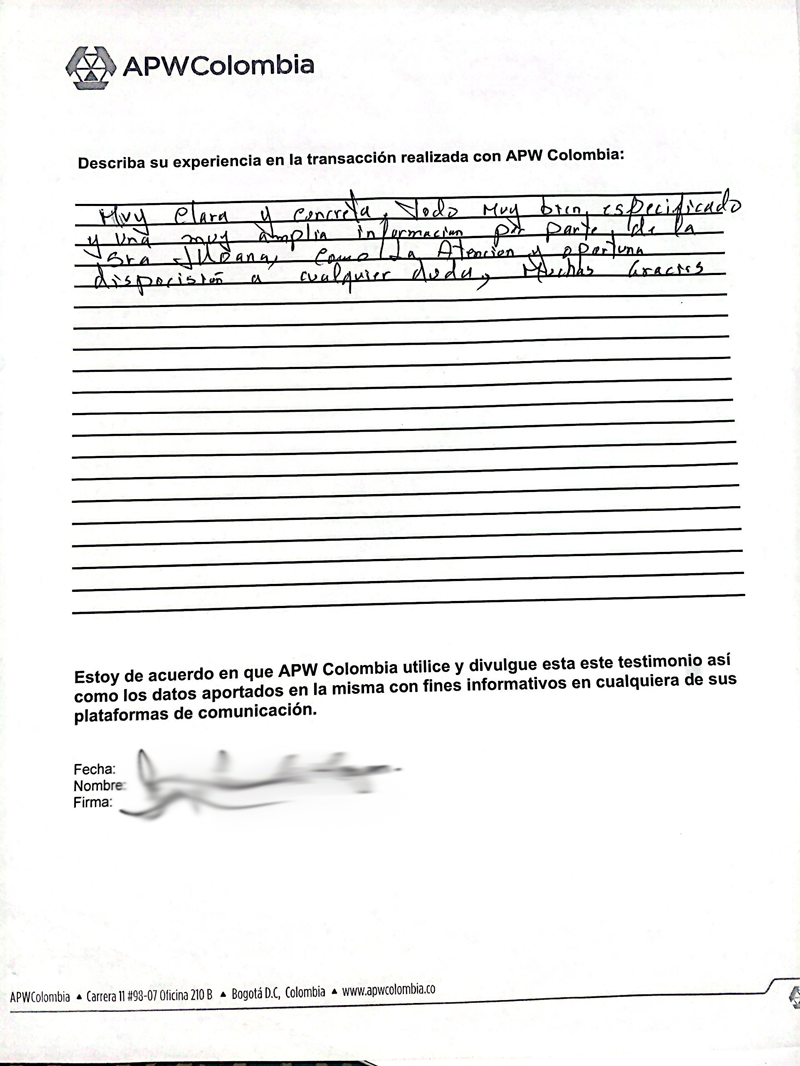 APWColombia
Describa su experiencia en la transacción realizada con APW Colombia:
Muy Clara y Concreta, Todo Muy bien especificado
y una muy amplia informacion por parte de la
Sra Iliana, como La Atencion y oportuna
dispocisión a cualquier duda, Muchas Gracias
Estoy de acuerdo en que APW Colombia utilice y divulgue esta este testimonio así
como los datos aportados en la misma con fines informativos en cualquiera de sus
plataformas de comunicación.
Fecha:
Nombre:
Firma:
APWColombia ▲ Carrera 11 #93-07 Oficina 210 B ▲ Bogotá D.C, Colombia ▲ www.apwcolombia.co